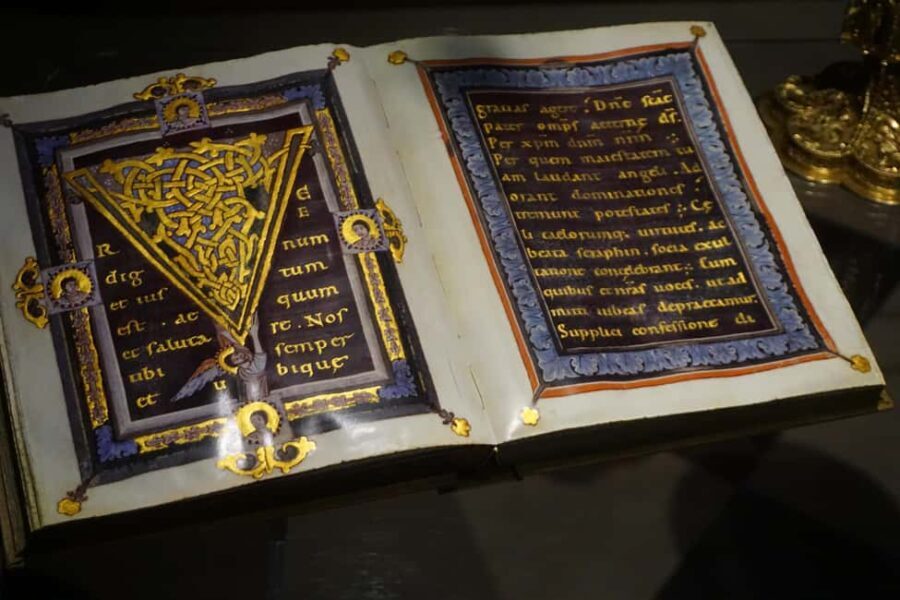 V
E
R E
dig num
et ius tum
est . ae quum
et saluta re . Nos
tibi semper
et u bique
gratias agere : Dne scae
pater omps aeterne ds.
Per xpm dnm nrm
Per quem maiestatem tu
am laudant angeli . Ad
orant dominationes :
tremunt potestates : Ce
li caelorumq; uirtutes . ac
beata seraphin . socia exul
tatione concelebrant : Cum
quibus et nras uoces . ut ad
mitti iubeas deprecamur.
Supplici confessione di